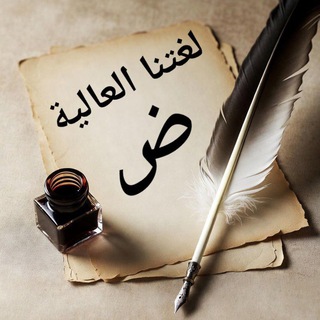 لغتنا العالية
ض